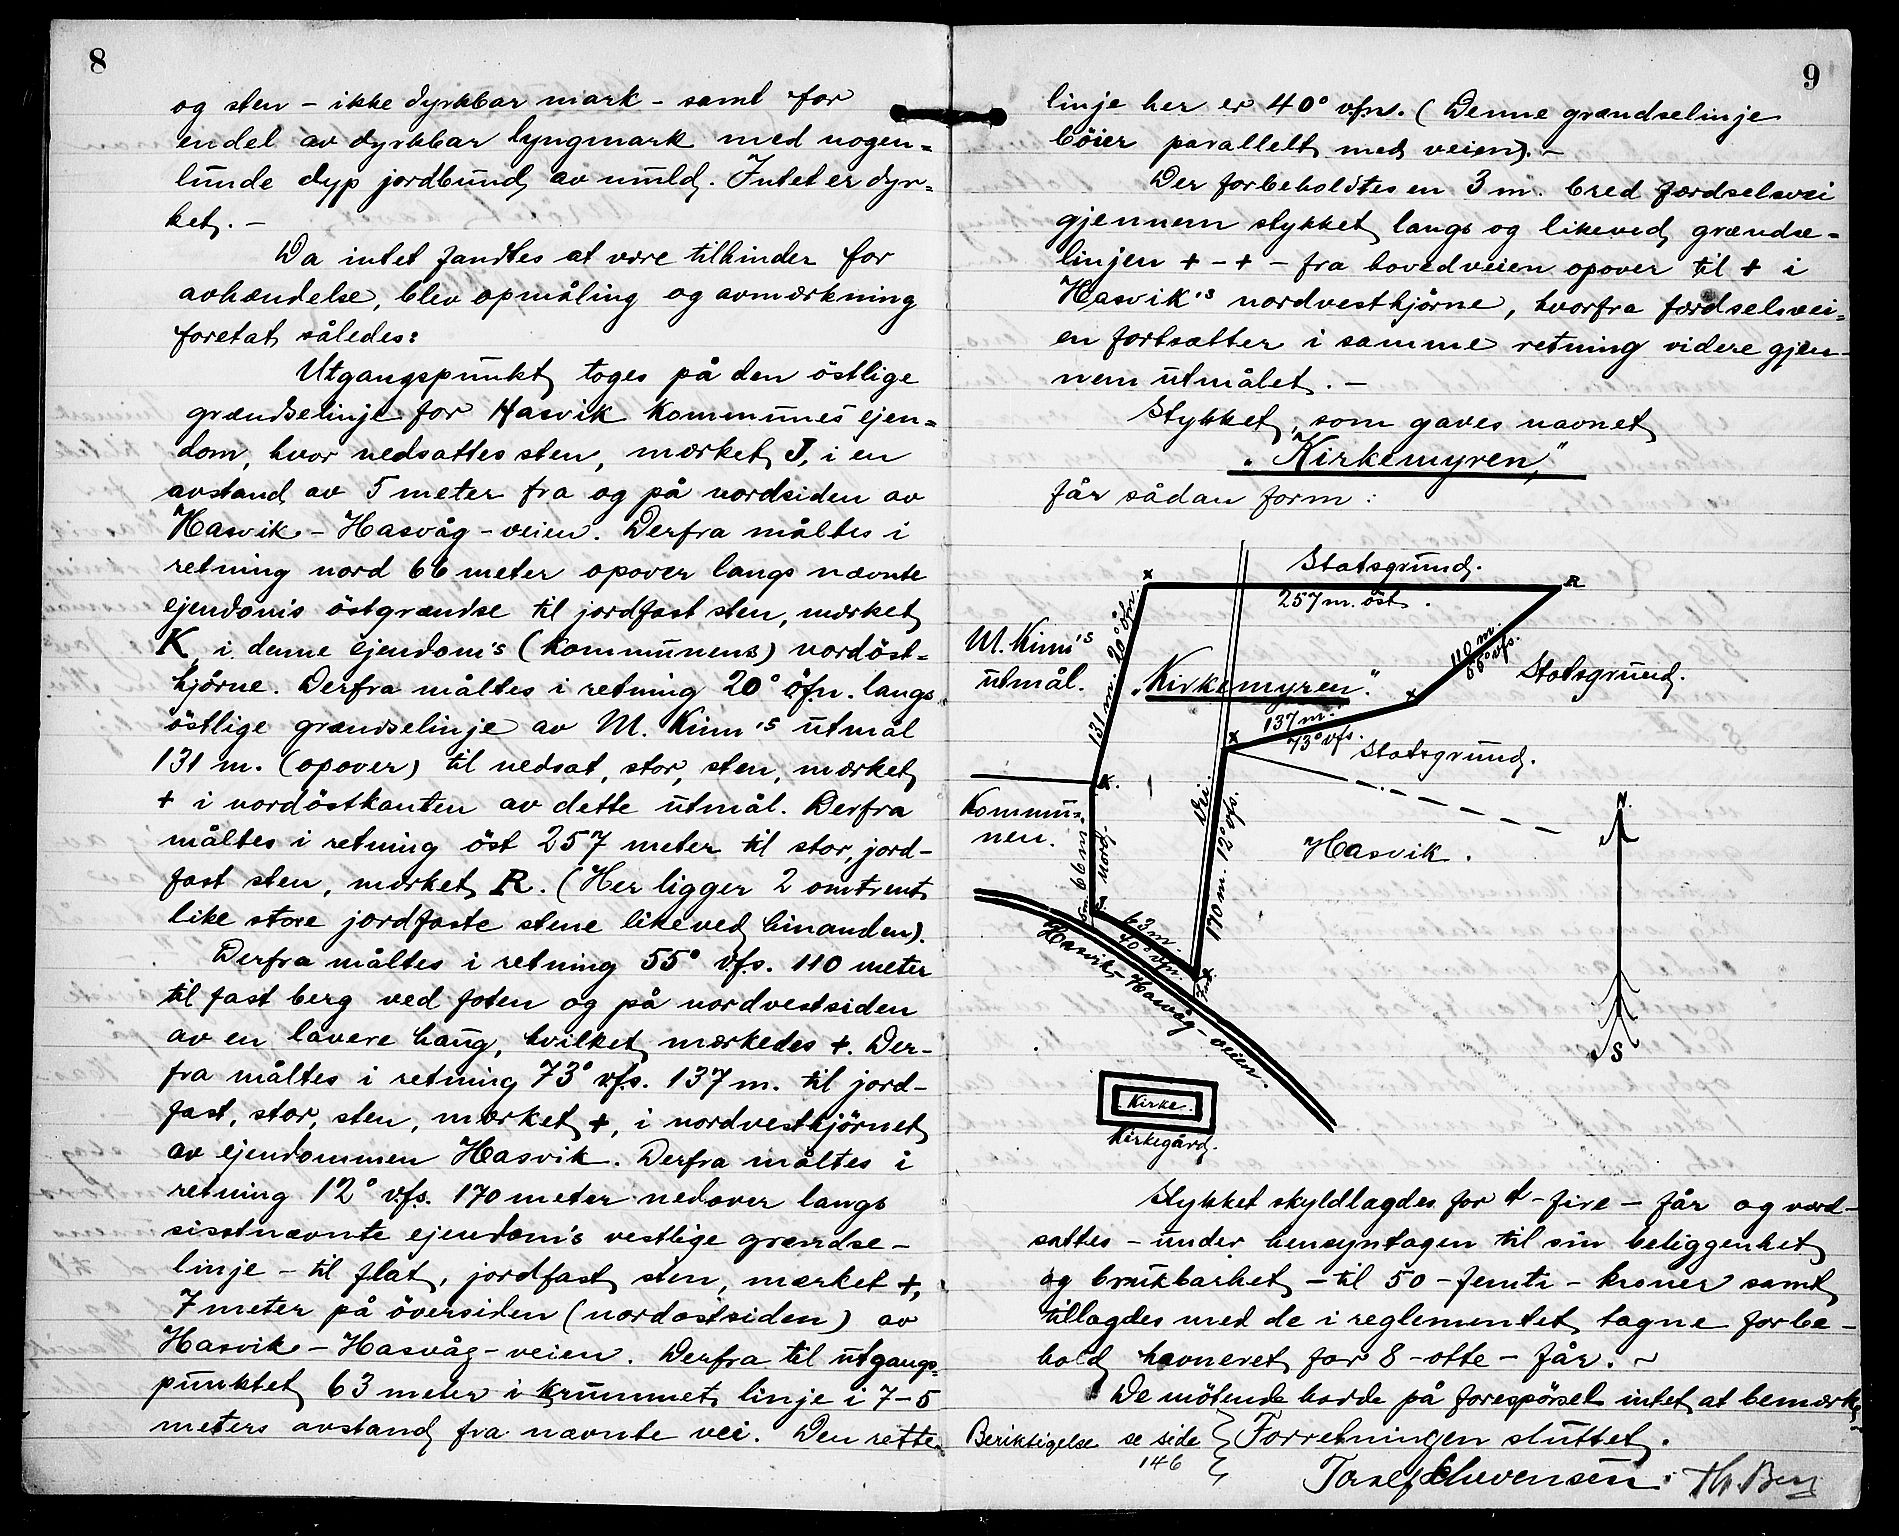 8
og sten - ikke dyrkbar mark - samt for
endel av dyrkbar lyngmark med nogen=
lunde dyp jordbund av muld. Intet er dyr=
ket. -
Da intet fandtes at være tilhinder for
avhændelse, blev opmåling og avmærkning
foretat således:
Utgangspunkt toges på den östlige
grændselinje for Hasvik kommunes ejen=
dom, hvor nedsattes sten, mærket J, i en
avstand av 5 meter fra og på nordsiden av
Hasvik - Hasvåg - veien. Derfra måltes i
retning nord 66 meter opover langs nævnte
ejendoms östgrændse til jordfast sten, mærket
K i denne ejendom's (kommunens) nordöst=
hjörne. Derfra måltes i retning 20° öfn. langs
östlige grændselinje av M. Kinn's utmål
131 m. (opover) til nedsat, stor, sten, mærket
+ i nordöstkanten av dette utmål. Derfra
måltes i retning öst 257 meter til stor, jord-
fast sten, mærket R. (Her ligger 2 omtrent
like store jordfaste stene likeved hinanden).
Derfra måltes i retning 55° vfs. 110 meter
til fast berg ved foten og på nordvestsiden
av en lavere haug, hvilket mærkedes +. Der-
fra måltes i retning 73° vfs. 137 m. til jord-
fast, stor, sten, mærket +, i nordvesthjörnet
av ejendommen Hasvik. Derfra måltes i
retning 12° vfs. 170 meter nedover langs
sistnævnte ejendom's vestlige grændse-
linje - til flat, jordfast sten, mærket +,
7 meter på översiden (nordostsiden) av
Hasvik - Hasvåg - veien. Derfra til utgangs=
punktet 63 meter i krummet linje i 7-5
meters avstand fra nævnte vei. Den rette
9
linje her er 40° vfn. (Denne grændselinje
böier parallelt med veien). -
Der forbeholdtes en 3 m. bred færdselsvei
gjennem stykket langs og likeved grændse=
linjen + - + - fra hovedveien opover til + i
Hasvik's nordvesthjörne, hvorfra færdselsvei=
en fortsætter i samme retning videre gjen-
nem utmålet. -
Stykket, som gaves navnet
"Kirkemyren,"
får sådan form:
Statsgrund.
x
R
257 m. öst.
131 m. 20° öfn.
M. Kinn's
utmål.
110 m.
55° vfs.
Statsgrund.
"Kirkemyren."
x
137 m.
73° vfs.
x
Statsgrund.
K.
Kommu=
nen.
66 m.
nord.
Vei.
170 m. 12° vfs.
Hasvik.
N.
S
5 m.
J.
63 m.
40° vfn.
x
7 m.
Hasvik - Hasvåg - veien.
Kirke.
Kirkegård.
Stykket skyldlagdes for 4 - fire - får og værd-
sattes - under hensyntagen til sin beliggenhet
og brukbarhet - til 50 - femti - kroner samt
tillagdes med de i reglementet tagne forbe-
hold havneret for 8 - otte - får. ~
De mötende hadde på forespörsel intet at bemærke.
Beriktigelse se side
146
Forretningen sluttet.